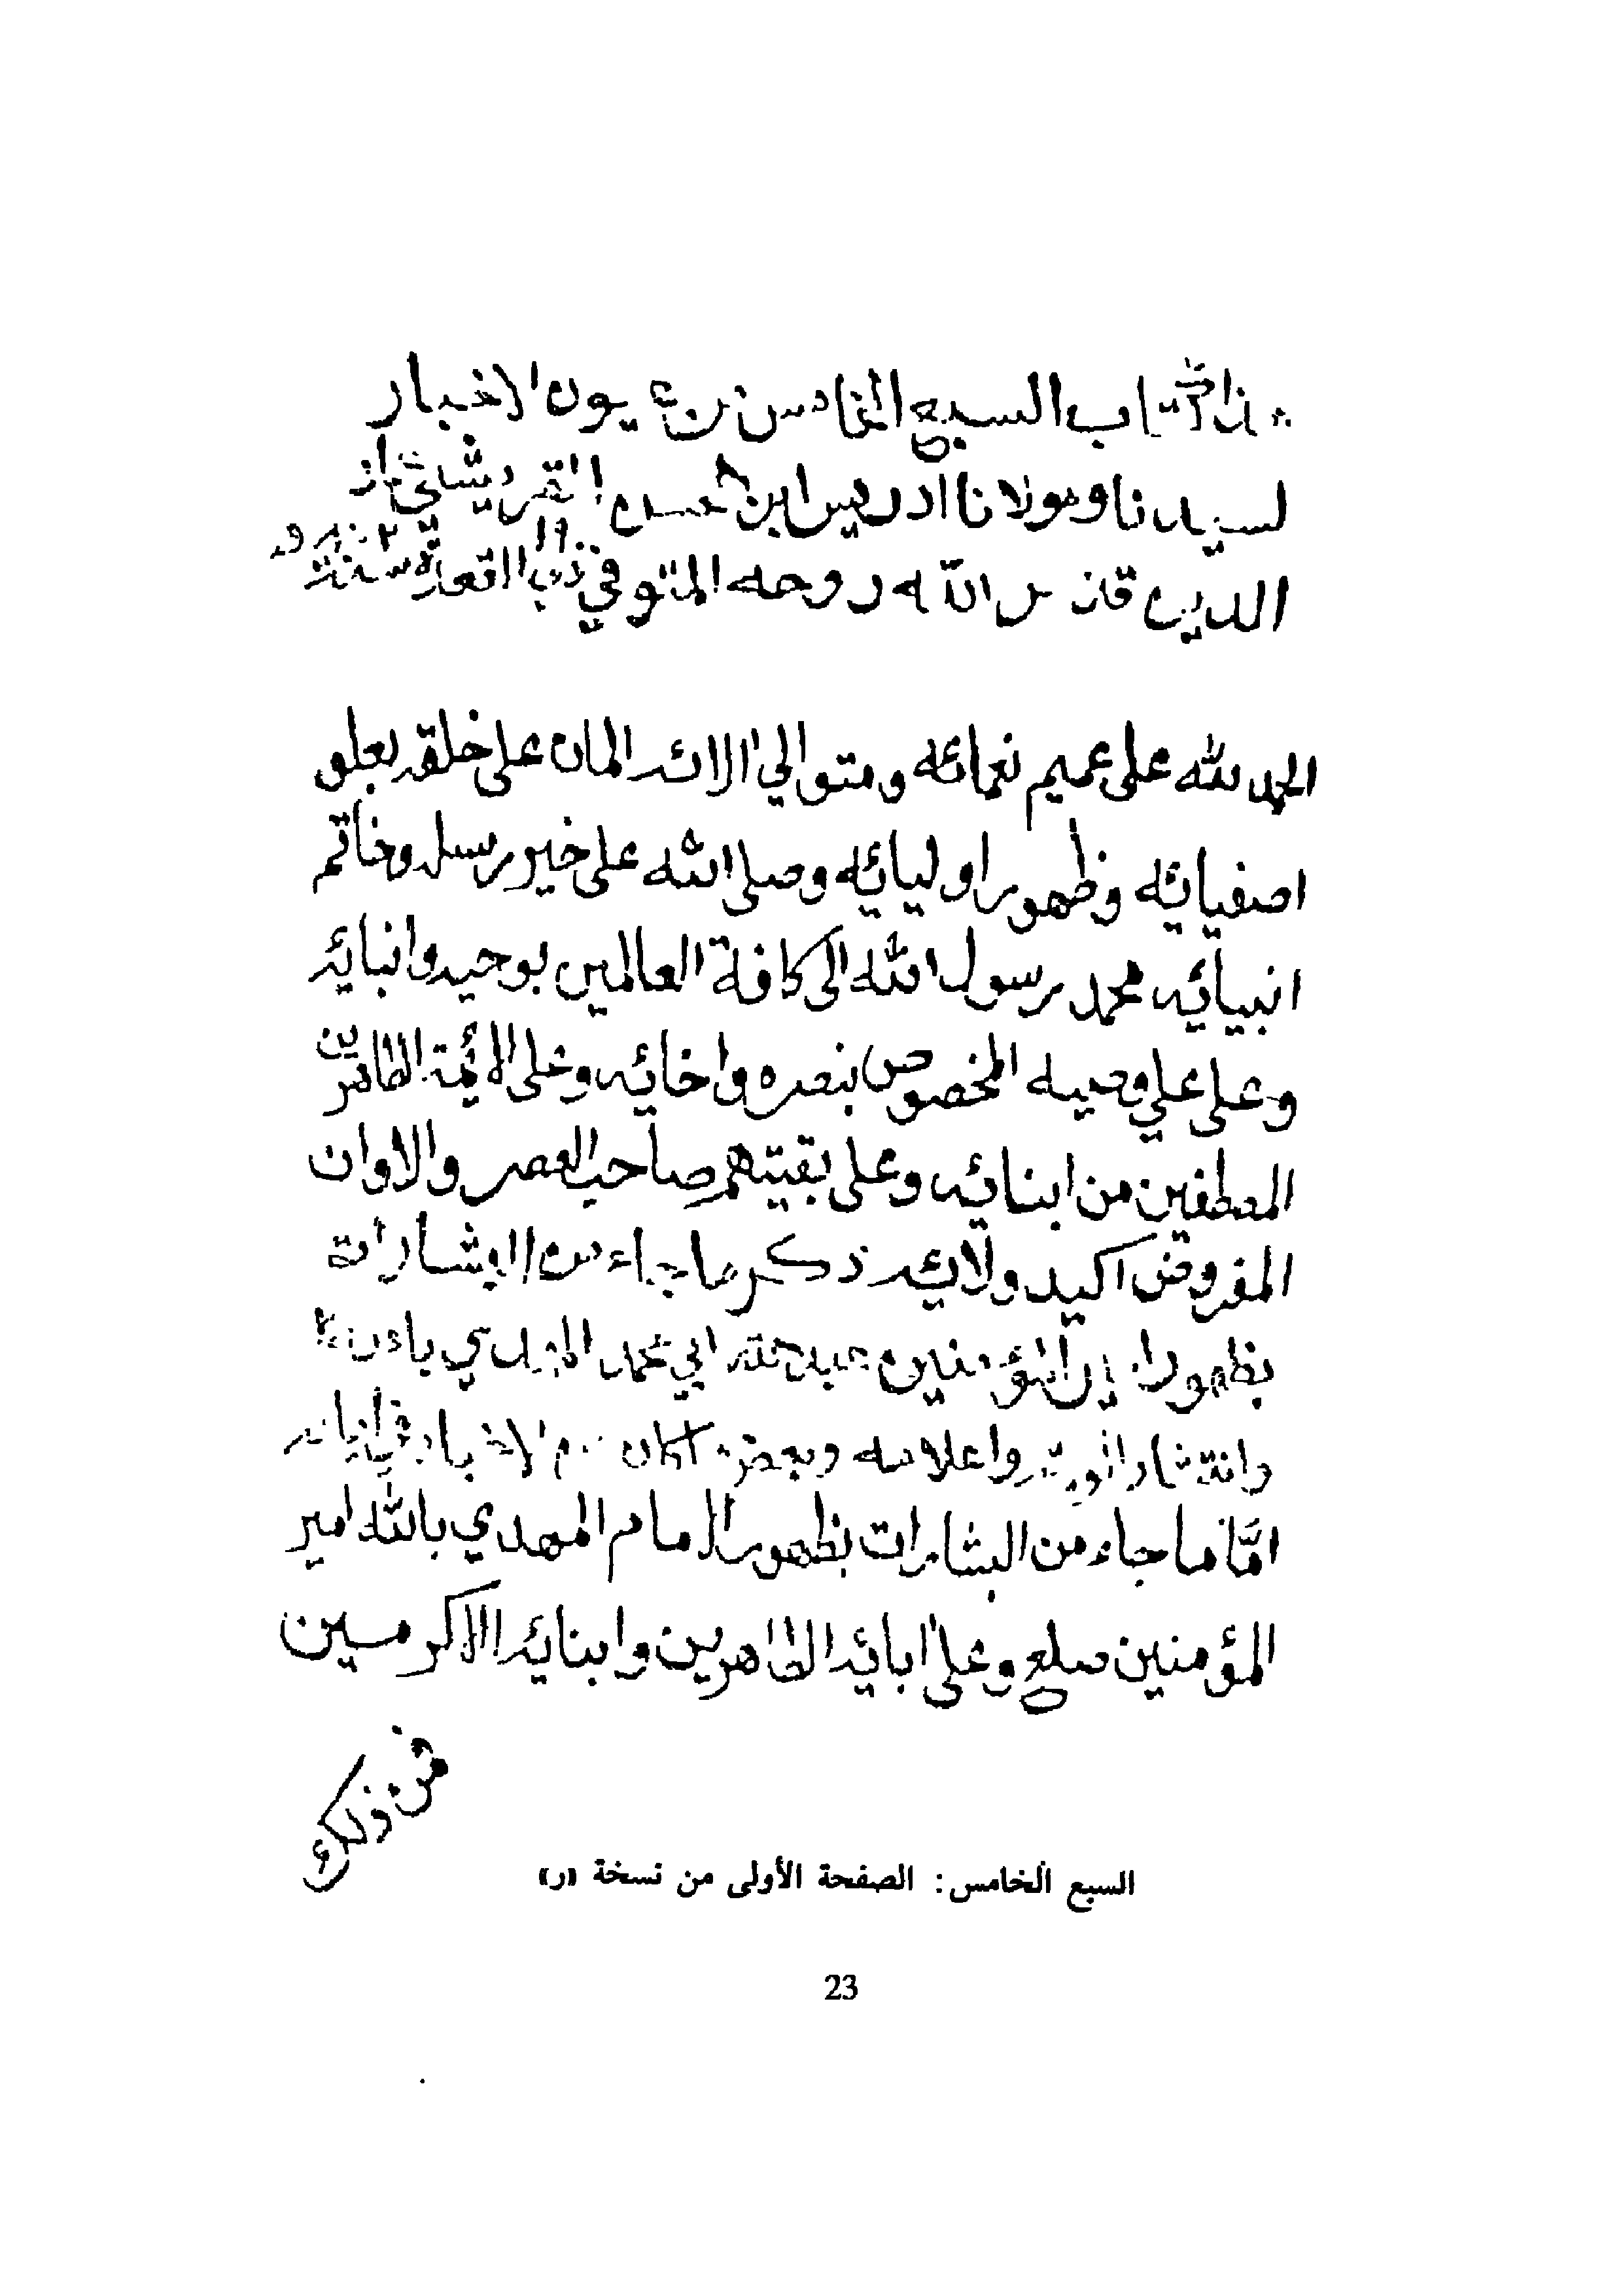 هذا كتاب السبع الخامس من عيون الاخبار
لسيدنا ومولانا ادريس ابن الحسن القرشي عماد
الدين قدس الله روحه المتوفي ذي القعدة سنة
الحمد لله على عميم نعمائه ومتوالي الائه المان على خلقه بعلو
اصفيائه وظهور اوليائه وصلى الله على خير رسله وخاتم
انبيائه محمد رسول الله الى كافة العالمين بوحيه وانبائه
وعلى علي وصيه المخصوص بنصره واخائه وعلى الائمة الطاهرين
المصطفين من ابنائه وعلى بقيتهم صاحب العصر والاوان
المفروض اكيد ولائه ذكر ما جاء من البشارات
بظهور امير المؤمنين عبد الله ابي محمد المهدي بالله
وانتشار واعلامه وبعض ما كان من الاخبار في
امّا ما جاء من البشارات بظهور الامام المهدي بالله امير
المؤمنين صلع وعلى ابائه الطاهرين وابنائه الاكرمين
فمن ذلك
السبع الخامس: الصفحة الأولى من نسخة «ر»
23